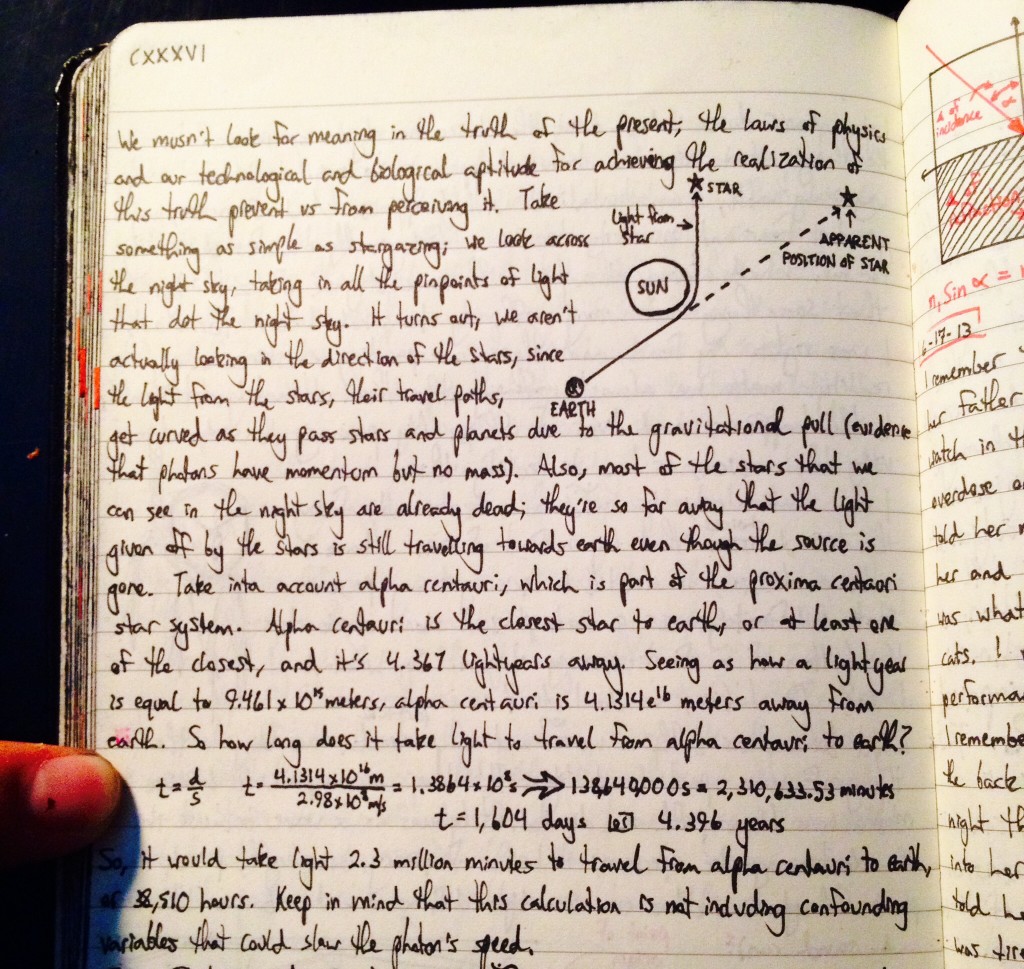 CXXXVI
We musn't look for meaning in the truth of the present; the laws of physics
and our technological and biological aptitude for achieving the realization of
this truth prevent us from perceiving it. Take
something as simple as stargazing; we look across
the night sky, taking in all the pinpoints of light
that dot the night sky. It turns out, we aren't
actually looking in the direction of the stars, since
the light from the stars, their travel paths,
STAR
light from
star
SUN
APPARENT
POSITION OF STAR
EARTH
get curved as they pass stars and planets due to the gravitational pull (evidence
that photons have momentum but no mass). Also, most of the stars that we
can see in the night sky are already dead; they're so far away that the light
given off by the stars is still travelling towards earth even though the source is
gone. Take into account alpha centauri, which is part of the proxima centauri
star system. Alpha centauri is the closest star to earth, or at least one
of the closest, and it's 4.367 lightyears away. Seeing as how a lightyear
is equal to 9.461 x 10¹⁵ meters, alpha centauri is 4.1314e¹⁶ meters away from
earth. So how long does it take light to travel from alpha centauri to earth?
t = d/s t = 4.1314x10¹⁶m / 2.98x10⁸m/s = 1.3864x10⁸s ⇒ 138,640,000s = 2,310,633.53 minutes
t = 1,604 days 4.396 years
So, it would take light 2.3 million minutes to travel from alpha centauri to earth,
or 38,510 hours. Keep in mind that this calculation is not including confounding
variables that could slow the photon's speed.
∠ of
incidence
α
n, Sin α =
6-17-13
I remember
her father
watch in
overdose
told her
her and
was what
cats. I
performa
I remembe
the back
night th
into her
told he
was tire